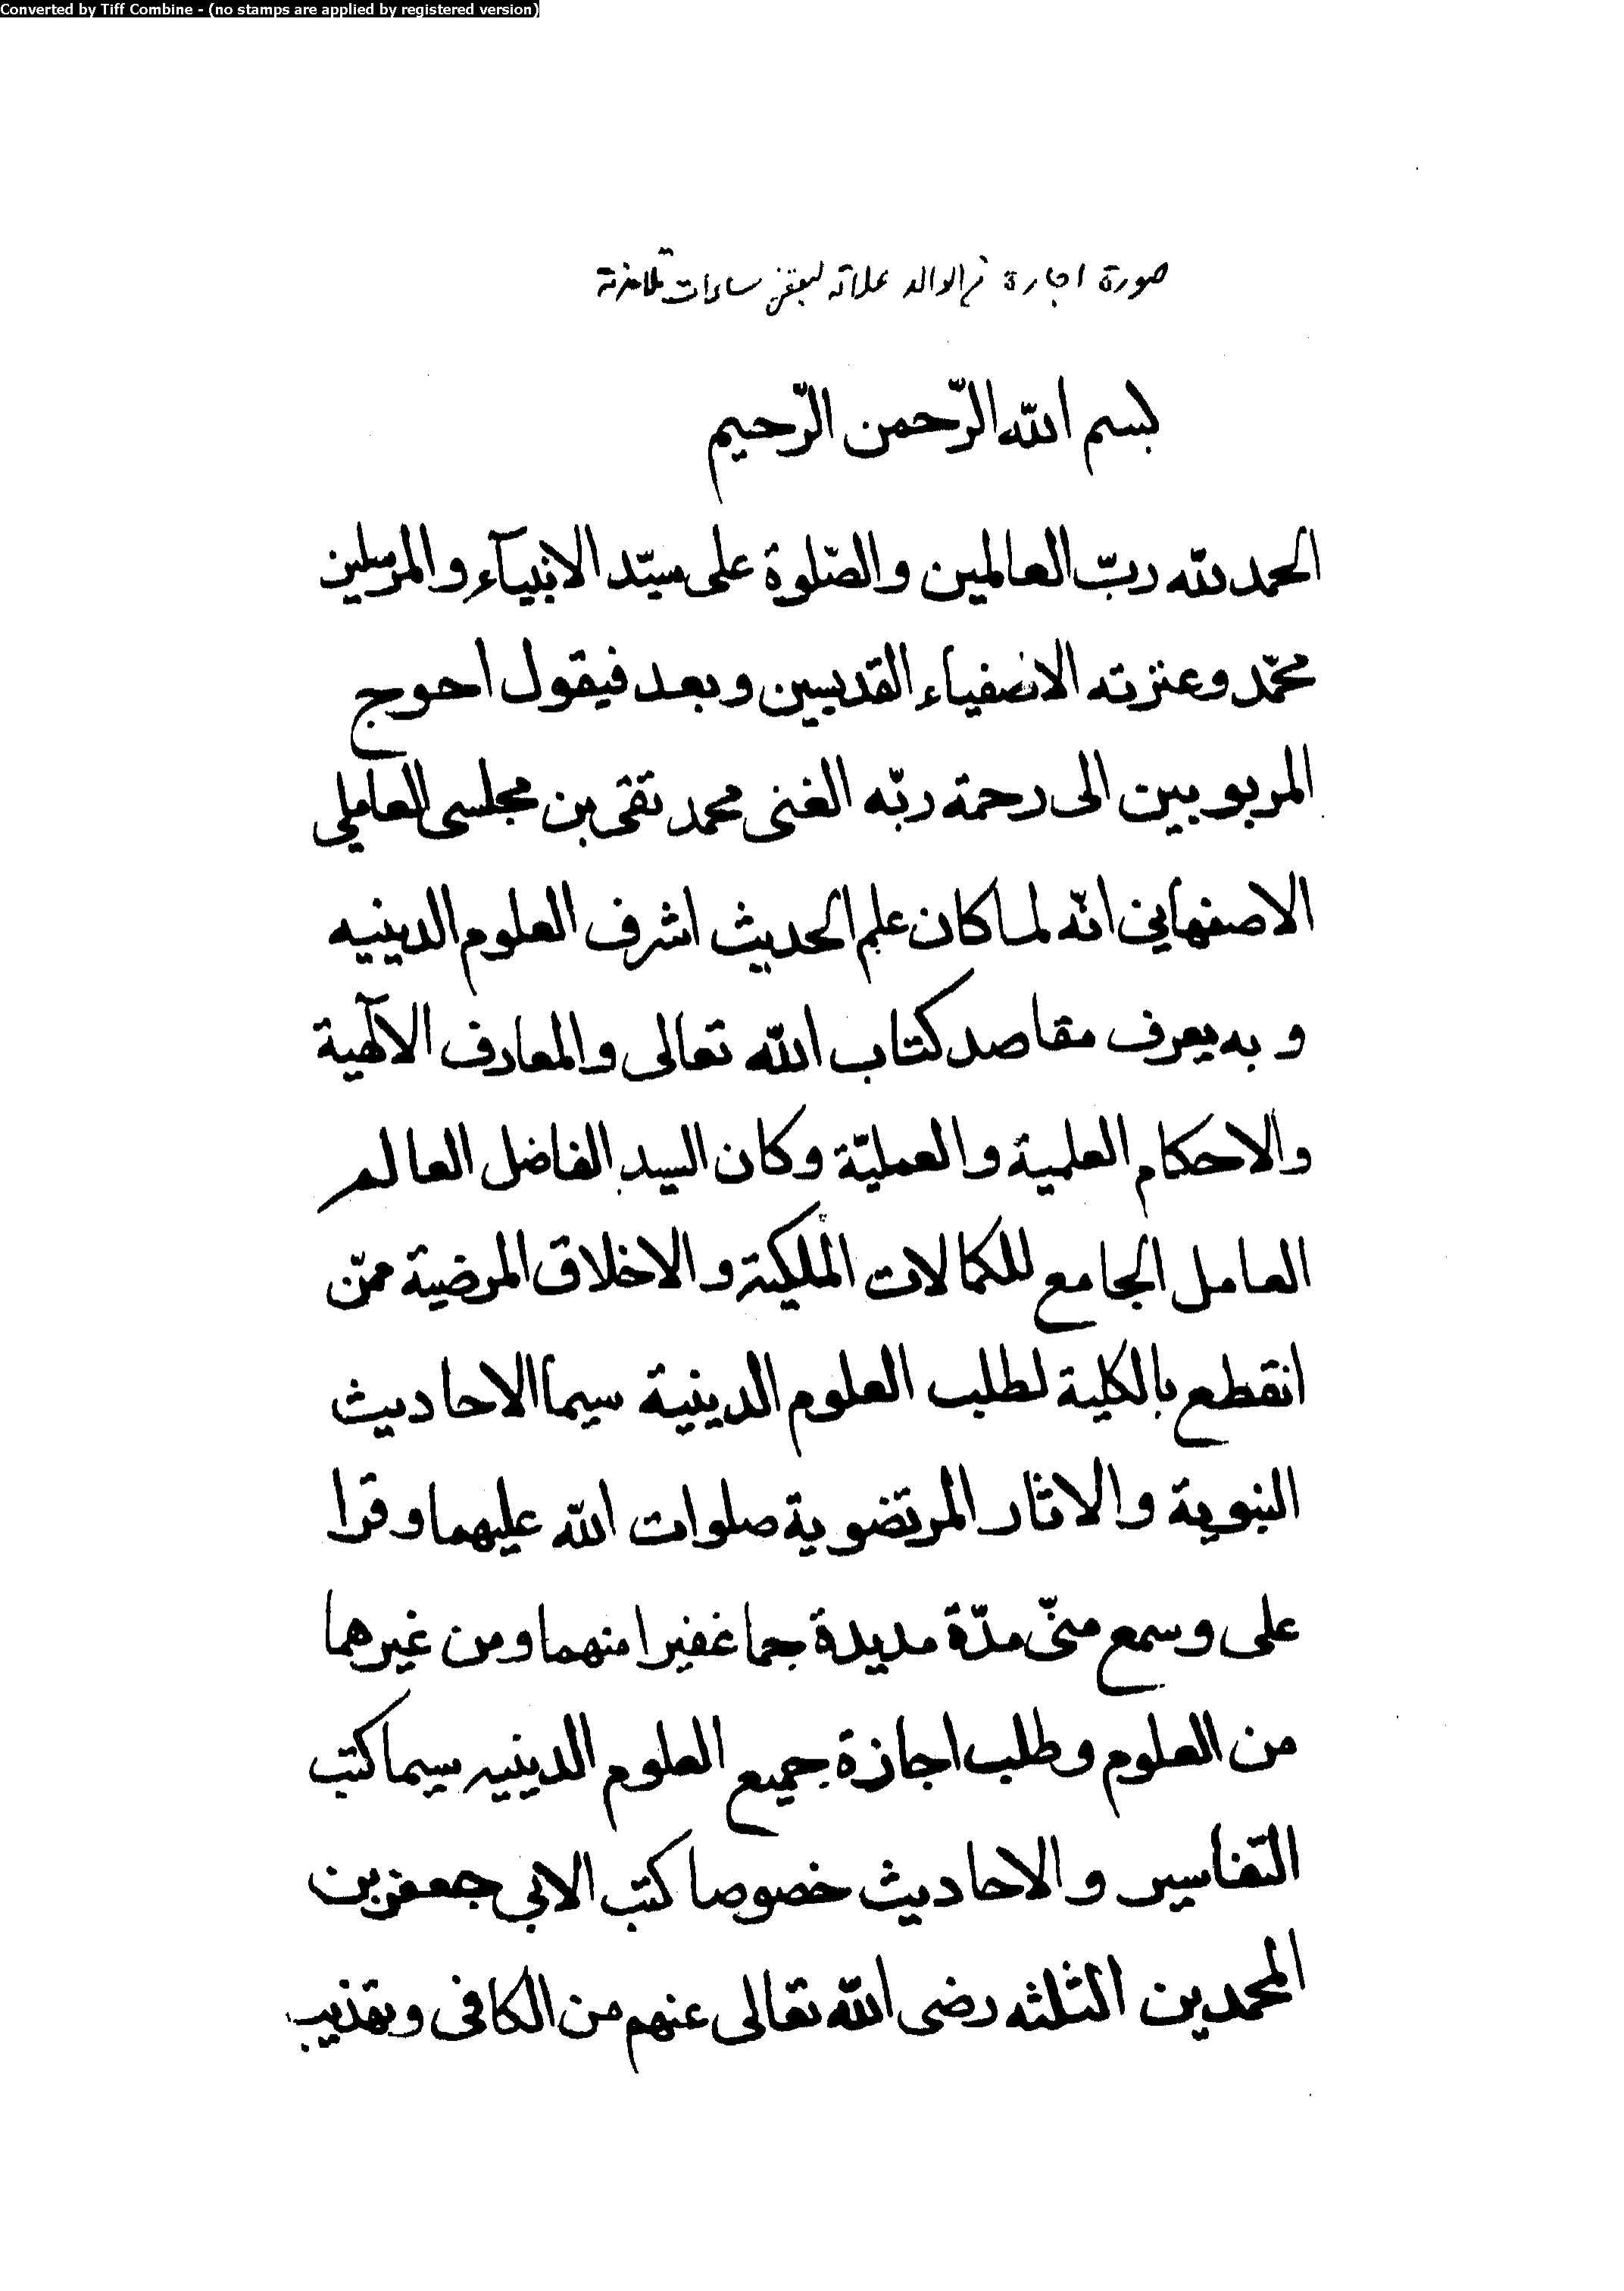 Converted by Tiff Combine - (no stamps are applied by registered version)
صورة اجازة الوالد لبعض سادات تلامذته
بسم الله الرّحمن الرّحيم
الحمد لله ربّ العالمين والصّلوة على سيّد الانبيآء والمرسلين
محمّد وعترته الاصفياء القديسين وبعد فيقول احوج
المربوبين الى رحمة ربّه الغنى محمد تقى بن مجلسى العاملي
الاصفهاني انّه لما كان علم الحديث اشرف العلوم الدينيه
وبه يعرف مقاصد كتاب الله تعالى والمعارف الآلهية
والاحكام العلمية والعمليّة وكان السيد الفاضل العالم
العامل الجامع للكمالات الملكية والاخلاق المرضية ممّن
انقطع بالكلية لطلب العلوم الدينية سيما الاحاديث
النبوية والاثار المرتضوية صلوات الله عليهما وقرا
على وسمع منّى مدّة مديدة جما غفيرا منهما ومن غيرهما
من العلوم وطلب اجازة جميع العلوم الدينيه سيما كتب
التفاسير والاحاديث خصوصا كتب الابي جعفربن
المحمدين الثلثه رضى الله تعالى عنهم من الكافى وتهذيب